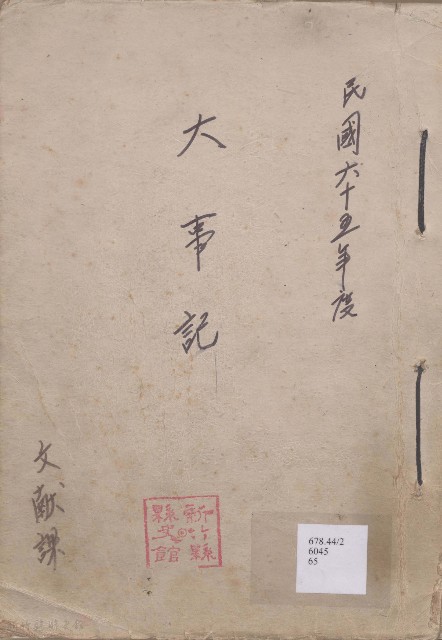 民國六十五年度
大事記
文献課
新竹縣
縣史館
678.44/2
6045
65